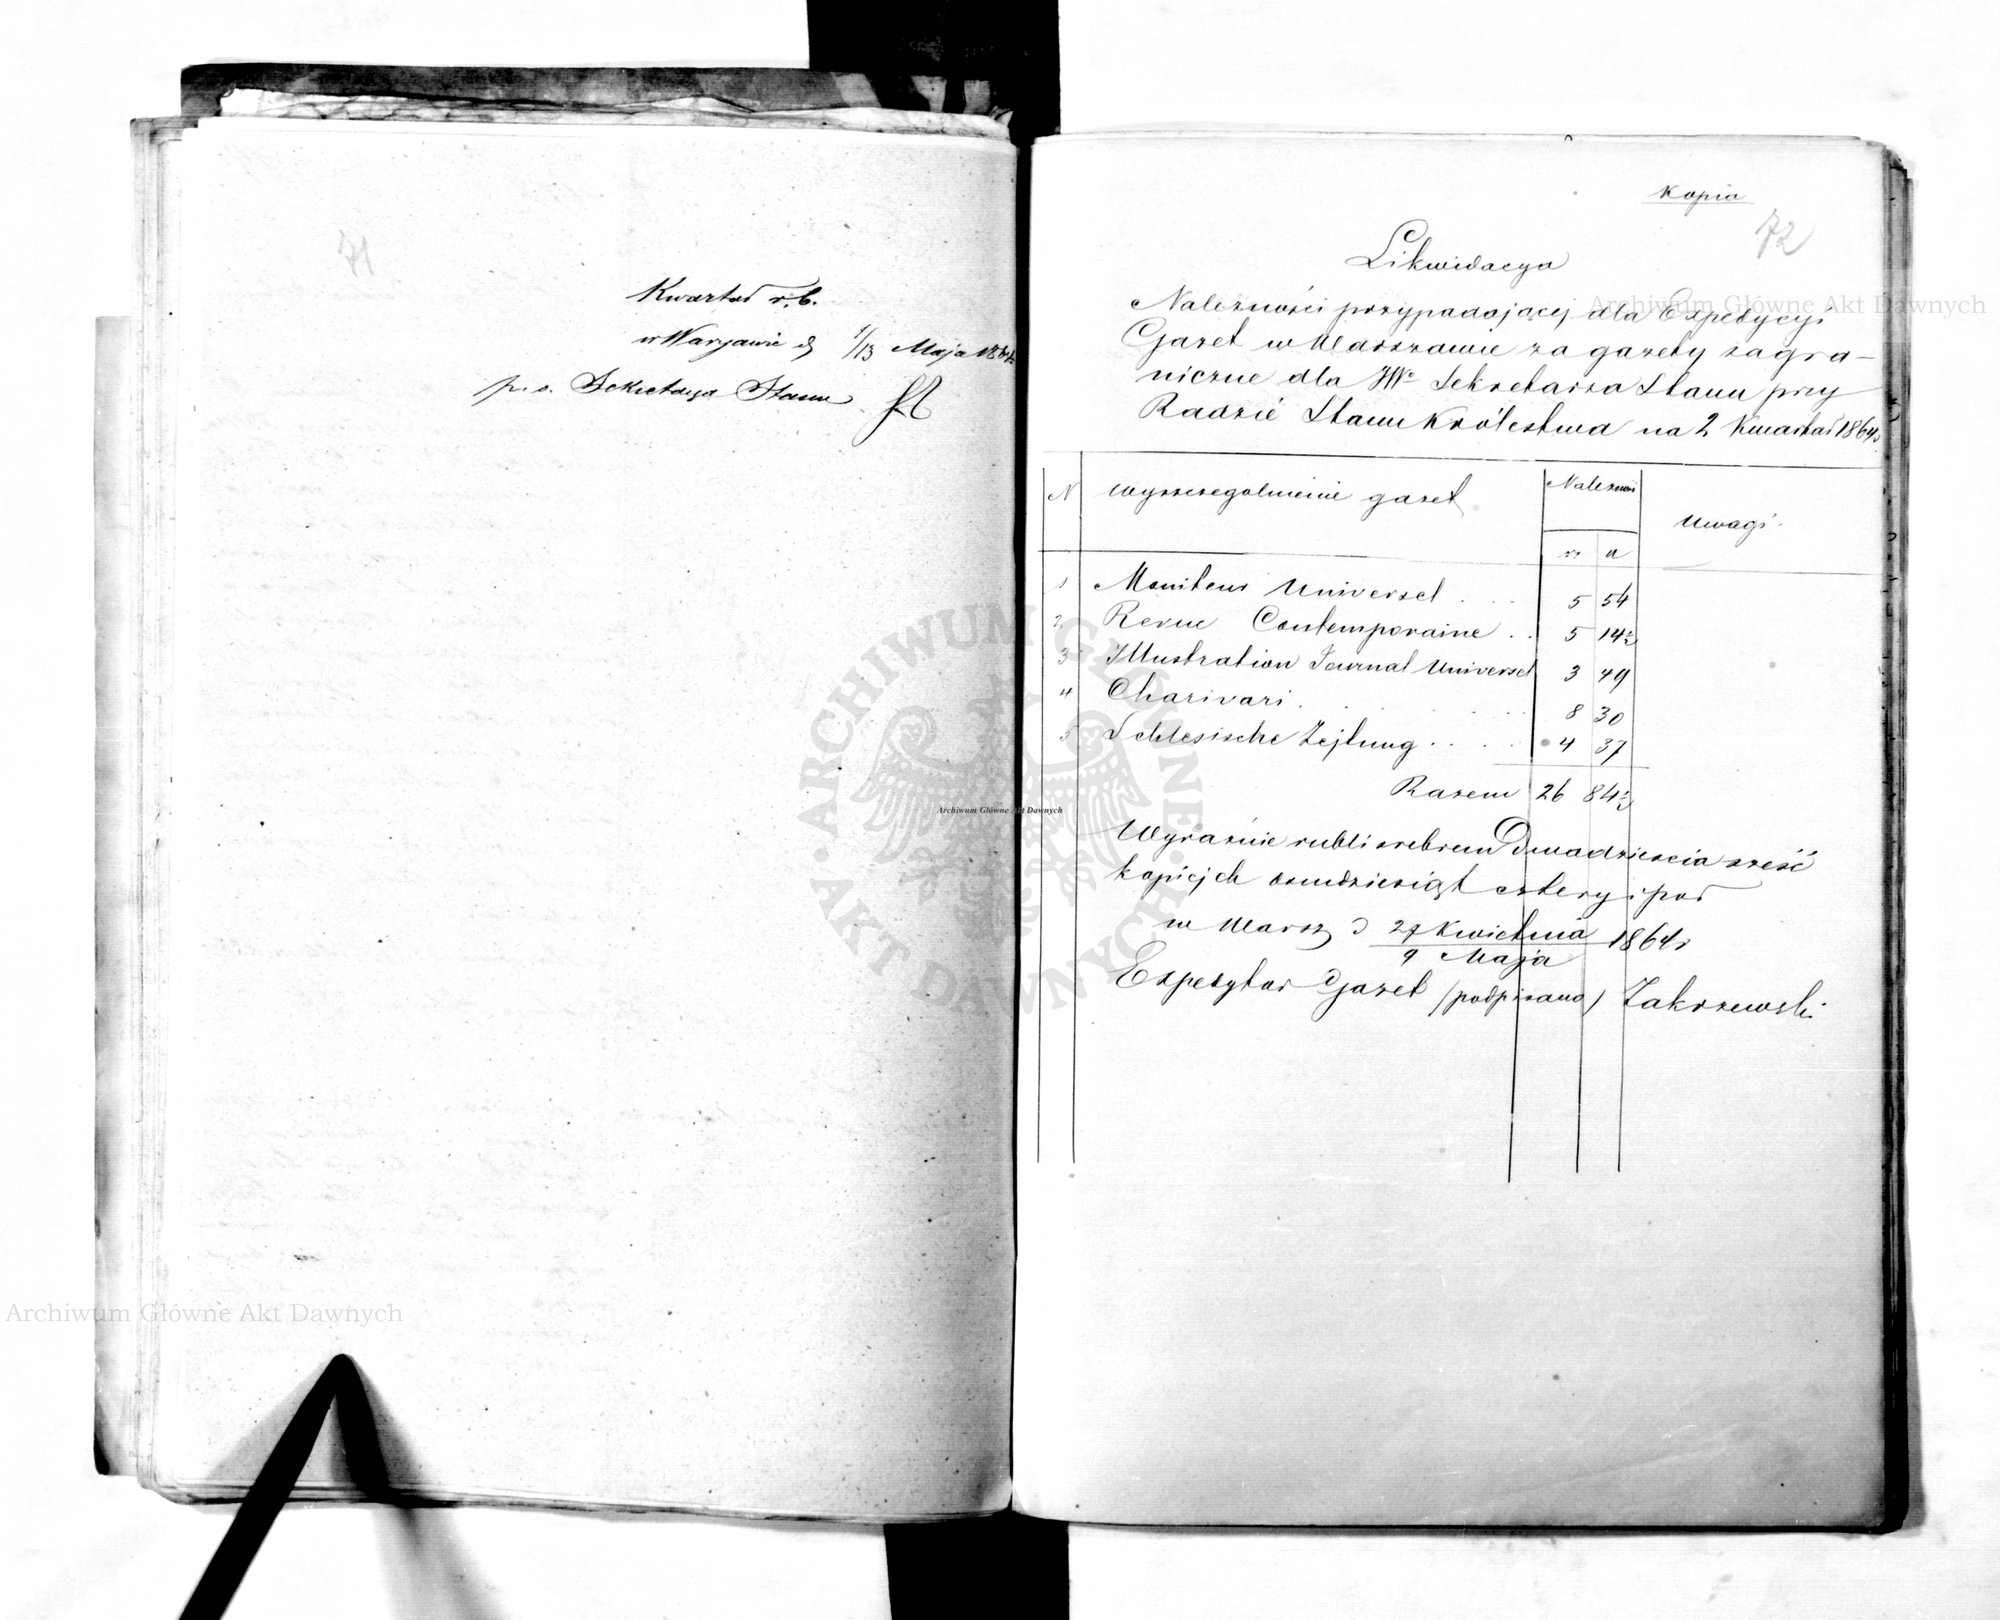 71
Kwartał r.b.
w Warszawie d. 1/13 Maja 1864
p.o. Sekretarza Stanu
Kopia
72
Likwidacya
Należności przypadającej dla Expedycyi
Gazet w Warszawie za gazety zagra-
niczne dla JWo Sekretarza Stanu przy
Radzie Stanu Królestwa na 2 Kwartał 1864 r
N wyszczególnienie gazet Należność Uwagi
rs k
1 Moniteur Universel . . . 5 54
2 Revue Contemporaine . . 5 14½
3 Illustration Journal Universel 3 49
4 Charivari . . . . . 8 30
5 Schlesische Zejtung . . . . 4 37
Razem 26 84½
Wyraźnie rubli srebrem Dwadzieścia sześć
kopiejek osmdziesiąt cztery i pół
w Warsz d 27 Kwietnia / 9 Maja 1864 r
Expedytor Gazet (podpisano) Zakrzewski
Archiwum Główne Akt Dawnych
Archiwum Główne Akt Dawnych
Archiwum Główne Akt Dawnych
ARCHIWUM GŁÓWNE · AKT DAWNYCH ·